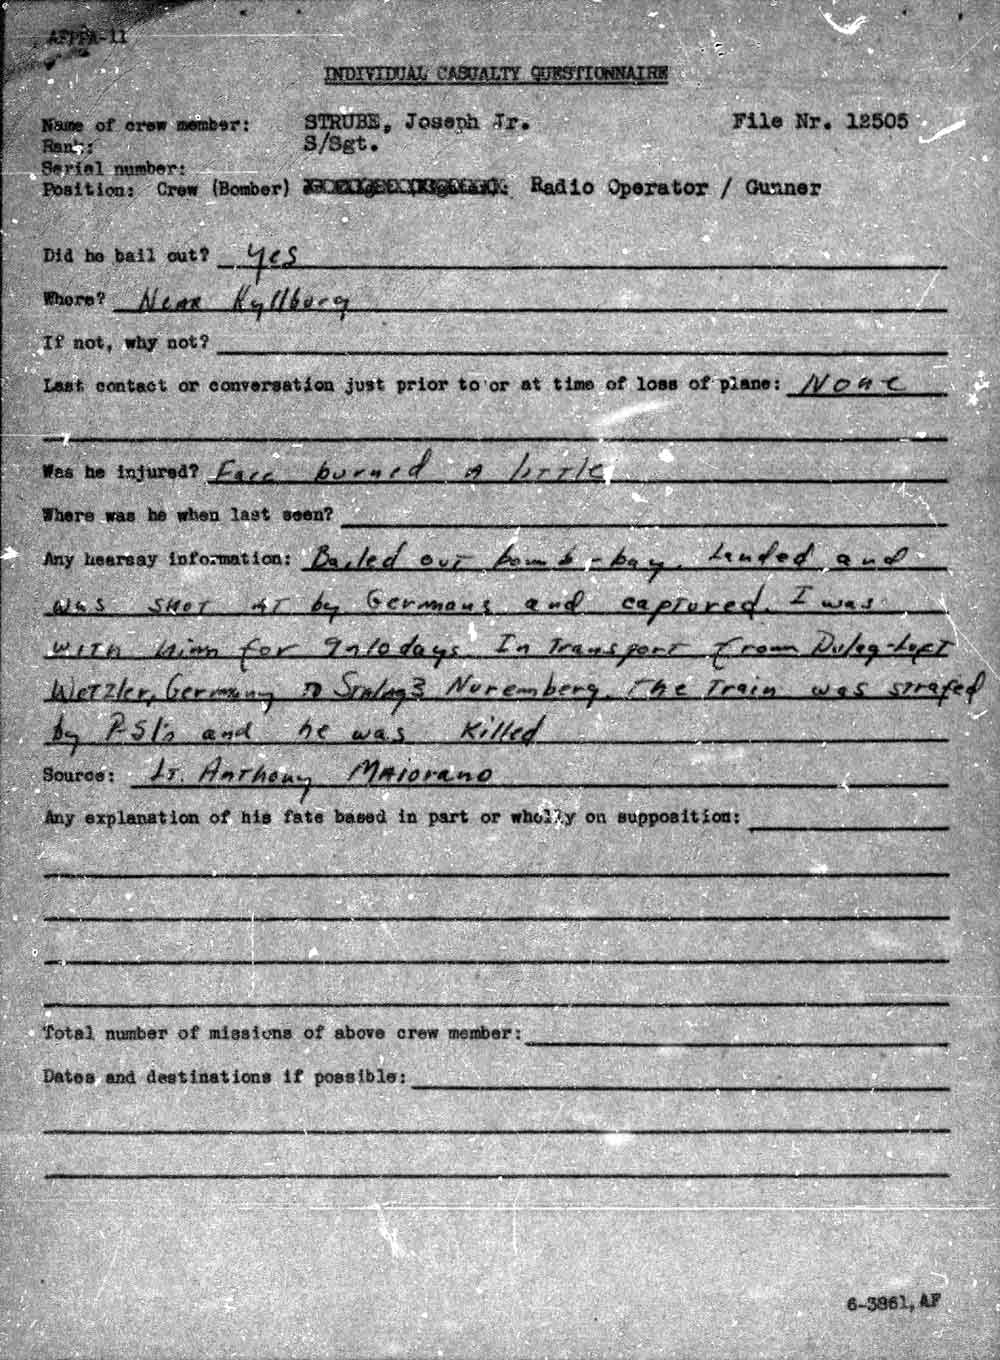 AFPPA-11
INDIVIDUAL CASUALTY QUESTIONNAIRE
Name of crew member: STRUBE, Joseph Jr. File Nr. 12505
Rank: S/Sgt.
Serial number:
Position: Crew (Bomber) Radio Operator / Gunner
Did he bail out? Yes
Where? Near Kyllburg
If not, why not?
Last contact or conversation just prior to or at time of loss of plane: None
Was he injured? Face burned a little
Where was he when last seen?
Any hearsay information: Bailed out bomb-bay. Landed and
was shot at by Germans and captured. I was
with him for 9 days. In Transport from Dulag-Luft
Wetzler, Germany to Stalag 3 Nuremberg. The Train was strafed
by P-51's and he was killed
Source: Lt. Anthony Maiorano
Any explanation of his fate based in part or wholly on supposition:
Total number of missions of above crew member:
Dates and destinations if possible:
6-3861, AF